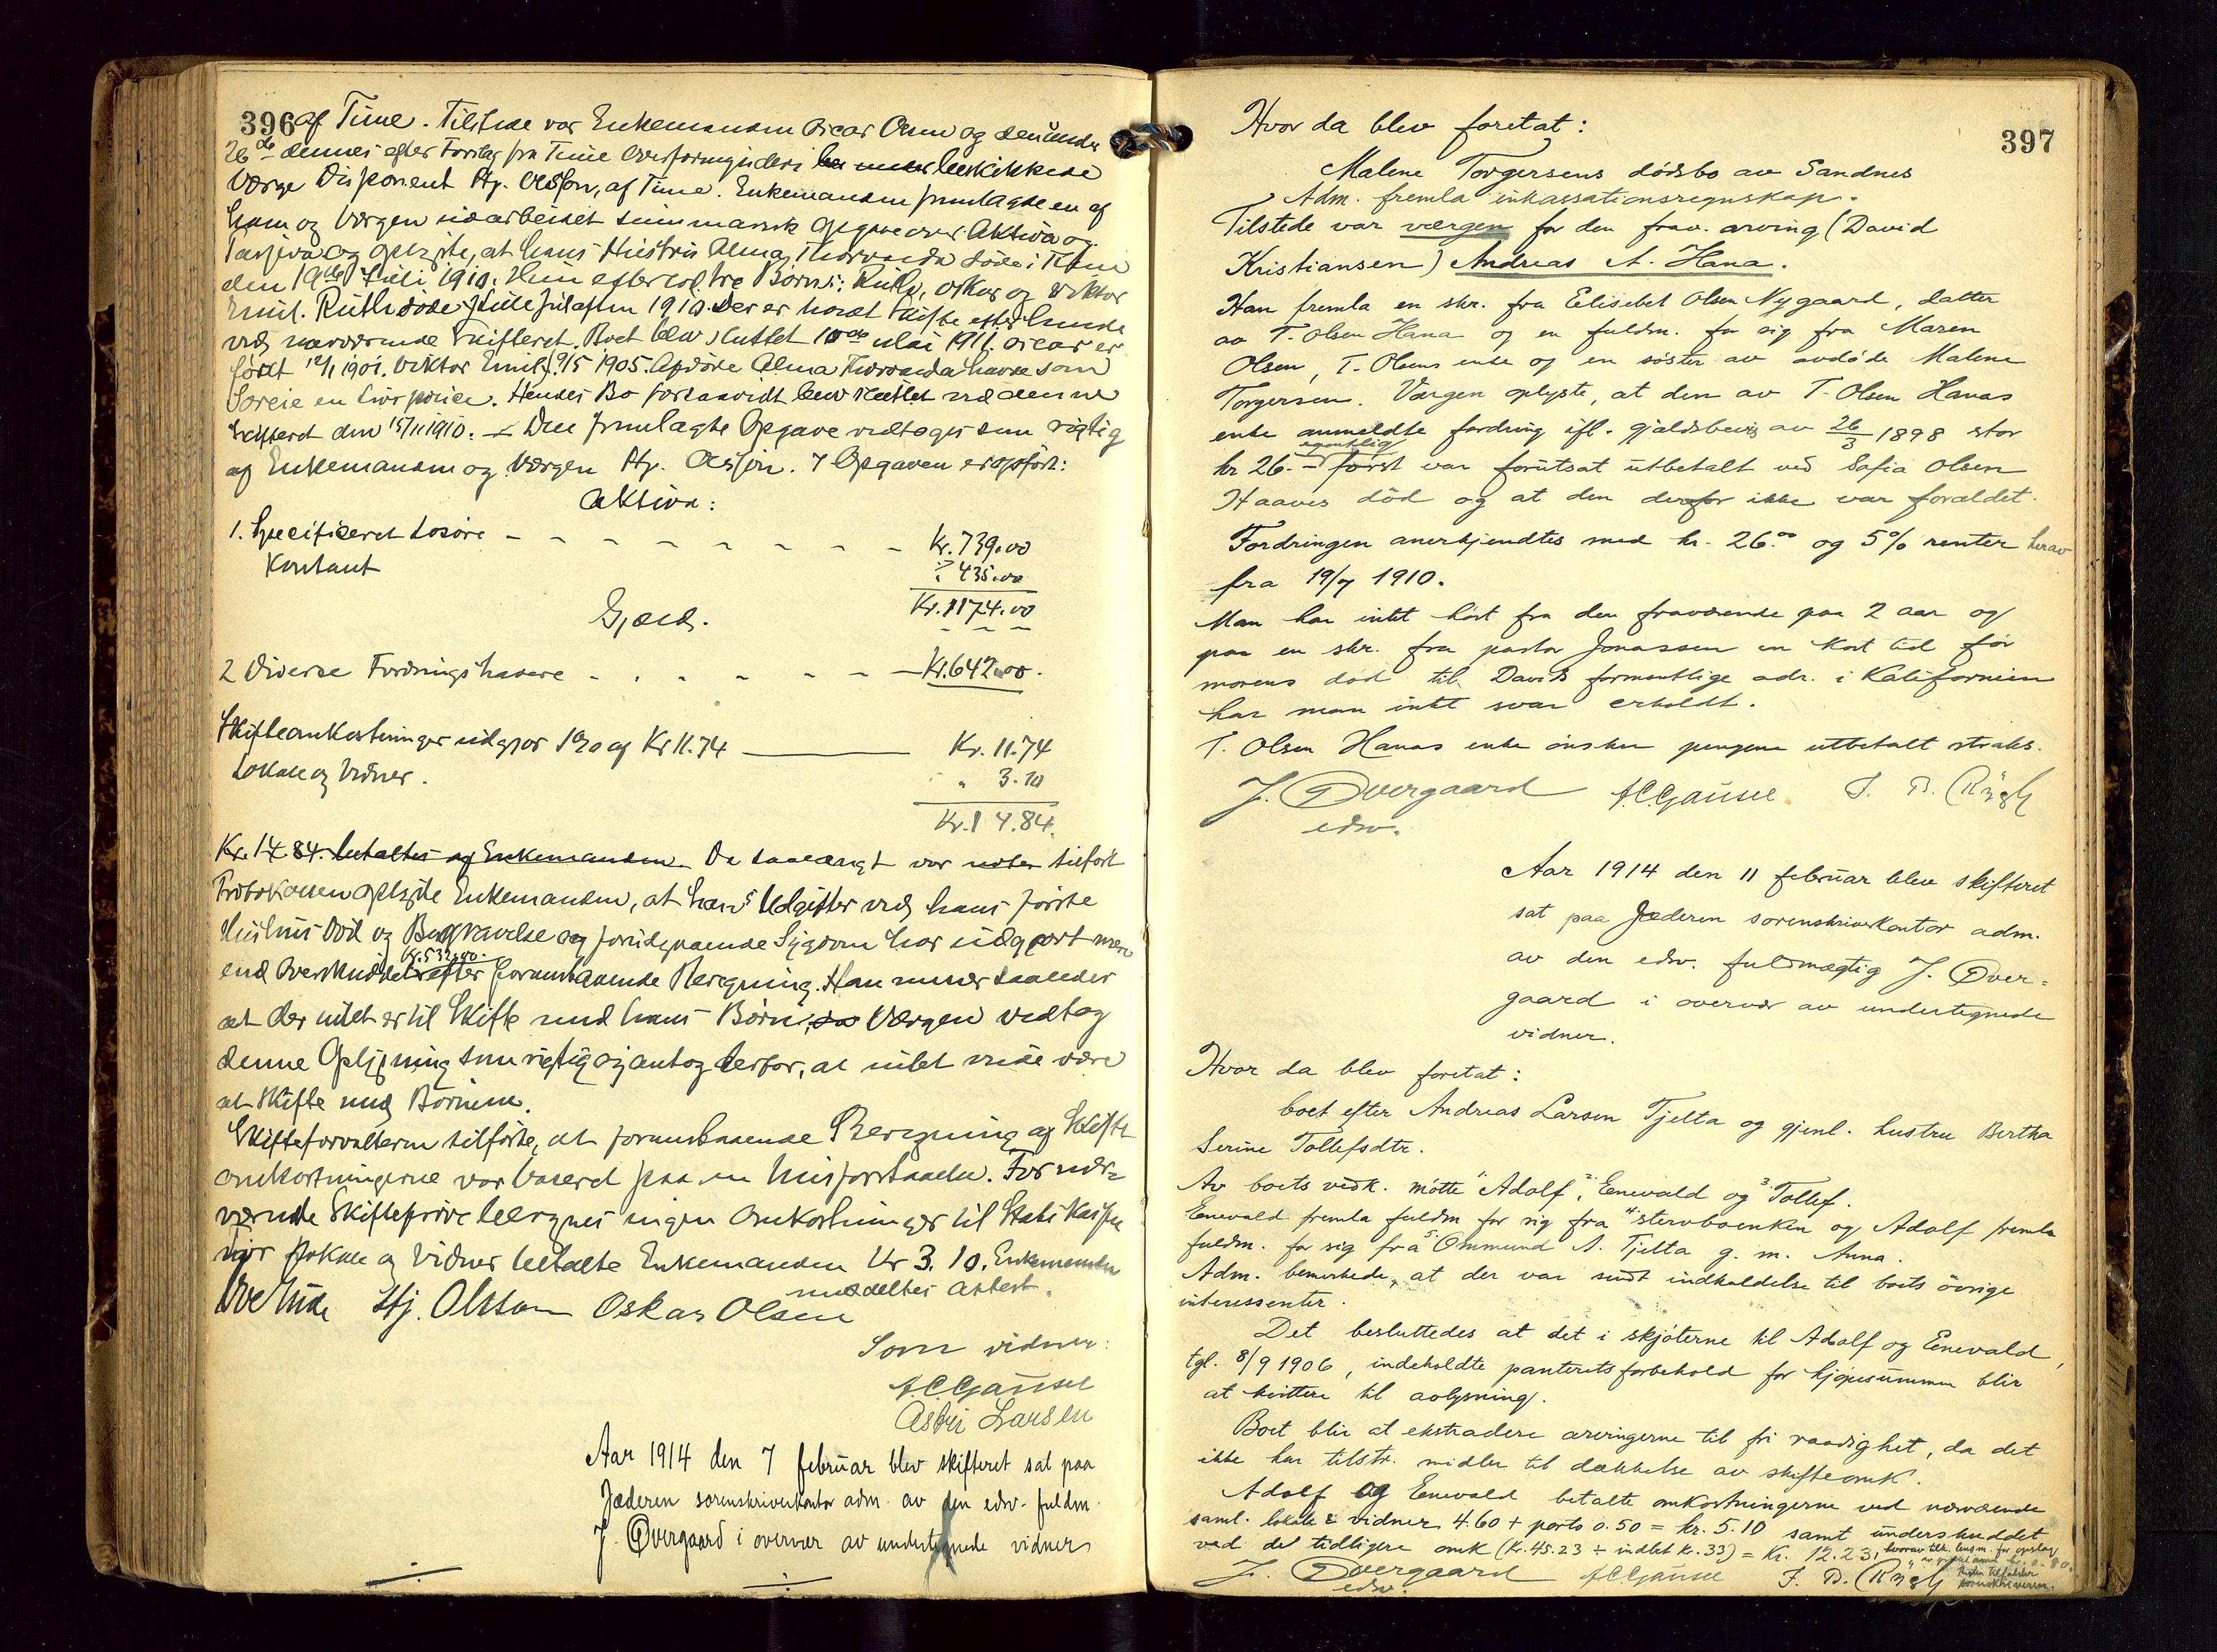 396 af Time. Tilstede var Enkemanden Oscar Olsen og den under
26de dennes efter Forslag fra Time Overformynderi beskikkede
Værge Disponent Hj. Olsson, af Time. Enkemanden fremlagde en af
ham og Værgen udarbeidet summarisk Opgave over Aktiva og
Passiva og oplyste, at hans Hustru Alma Thorvalda døde i Time
den 19de Juli 1910. Hun efterlod tre Børn: Ruth, Oskar og Viktor
Emil. Ruth døde Juleaften 1910. Der er holdt Skifte efter hende
ved nærværende Skifteret. Boet blev sluttet 10de Mai 1911. Oscar er
født 12/1 1901. Viktor Emil f. 9/5 1905. Afdøde Alma Thorvalda havde som
Særeie en Livspolice. Hendes Bo forsaavidt blev sluttet ved denne
Skifteret den 15/11 1910. Den fremlagte Opgave vedtoges som rigtig
af Enkemanden og Værgen Hj. Olsson. I Opgaven er opført:
Aktiva:
1. Specificeret Løsøre - - - - - - - - Kr. 739.00
Kontant " 435.00
Kr. 1174.00
Gjæld.
2 Diverse Fordringshavere - - - - - - - Kr. 642.00.
Skifteomkostninger udgjør 1% af Kr 11.74 — Kr. 11.74
Lokale og Vidner. " 3.10
Kr. 14.84.
Kr. 14.84. betaltes af Enkemanden. Da saalangt var tilført
Protokollen oplyste Enkemanden, at hans Udgifter ved hans første
Hustrus Død og Begravelse og forudgaaende Sygdom har udgjort mere
end Overskuddet Kr. 532.00. efter foranstaaende Beregning. Han mener saaledes
at der intet er til Skifte med hans Børn, Værgen vedtog
denne Oplysning som rigtig og antog derfor, at intet vilde være
at skifte med Børnene.
Skifteforvalteren tilførte, at foranstaaende Beregning af Skifte
omkostningerne var baseret paa en Misforstaaelse. For nær-
værende Skifteprøve beregnes ingen Omkostninger til Statskassen
For Lokale og Vidner betalte Enkemanden Kr 3.10. Enkemanden
meddeltes Attest.
Hj. Olsson Oskar Olsen
Som vidner:
A C Gausel
Astri Larsen
Aar 1914 den 7 februar blev skifteret sat paa
Jæderen sorenskriverkontor adm. av den edsv. fuldm.
J. Øvergaard i overvær av undertegnede vidner
397
Hvor da blev foretat:
Malene Torgersens dødsbo av Sandnes
Adm. fremla inkassationsregnskap.
Tilstede var værgen for den frav. arving (David
Kristiansen) Andreas A. Hana.
Han fremla en skr. fra Elisabet Olsen Nygaard, datter
av T. Olsen Hana og en fuldm. for sig fra Maren
Olsen, T. Olsens enke og en søster av avdøde Malene
Torgersen. Værgen oplyste, at den av T. Olsen Hanas
enke anmeldte fordring ifl. gjældsbevis av 26/3 1898 stor
kr 26.- egentlig først var forutsat utbetalt ved Sofia Olsen
Haaves død og at den derfor ikke var forældet.
Fordringen anerkjendtes med kr. 26.00 og 5% renter herav
fra 19/7 1910.
Man har intet hørt fra den fraværende paa 2 aar og
paa en skr. fra pastor Jonassen en kort tid før
morens død til Davids formentlige adr. i Kalifornien
har man intet svar erholdt.
T. Olsen Hanas enke ønsker pengene utbetalt straks.
J. Øvergaard A C Gausel
edsv.
Aar 1914 den 11 februar blev skifteret
sat paa Jæderen sorenskriverkontor adm.
av den edsv. fuldmægtig J. Øver-
gaard i overvær av undertegnede
vidner.
Hvor da blev foretat:
boet efter Andreas Larsen Tjelta og gjenl. hustru Bertha
Serine Tollefsdtr.
Av boets vedk. møtte 1 Adolf, 2 Enevald og 3 Tollef.
Enevald fremla fuldm for sig fra 4 stervboenken og Adolf fremla
fuldm. for sig fra 5 Ommund A. Tjelta g. m. Anna.
Adm. bemerkede, at der var sendt indkaldelse til boets øvrige
interessenter.
Det besluttedes at det i skjøterne til Adolf og Enevald,
tgl. 8/9 1906, indeholdte panteretsforbehold for kjøpesummen blir
at kvittere til avlysning.
Boet blir at ekstradere arvingerne til fri raadighet, da det
ikke har tilstr. midler til dækkelse av skifteomk.
Adolf og Enevald betalte omkostningerne ved nærværende
saml. lokale & vidner 4.60 + porto 0.50 = kr. 5.10 samt underskuddet
ved det tidligere omk (kr. 45.23 ÷ indbet kr. 33) = Kr. 12.23, hvorav tilk. lensm. for opslag
J. Øvergaard A C Gausel
edsv. sorenskriveren.